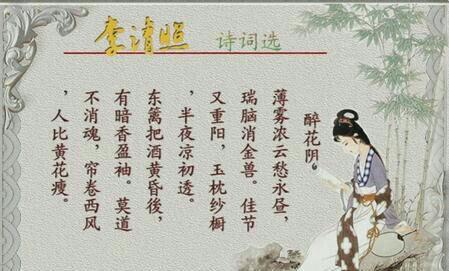 李清照
诗词选
醉花阴。
薄雾浓云愁永昼，
瑞脑消金兽。佳节
又重阳，玉枕纱橱
，半夜凉初透。
东篱把酒黄昏後，
有暗香盈袖。莫道
不消魂，帘卷西风
，人比黄花瘦。